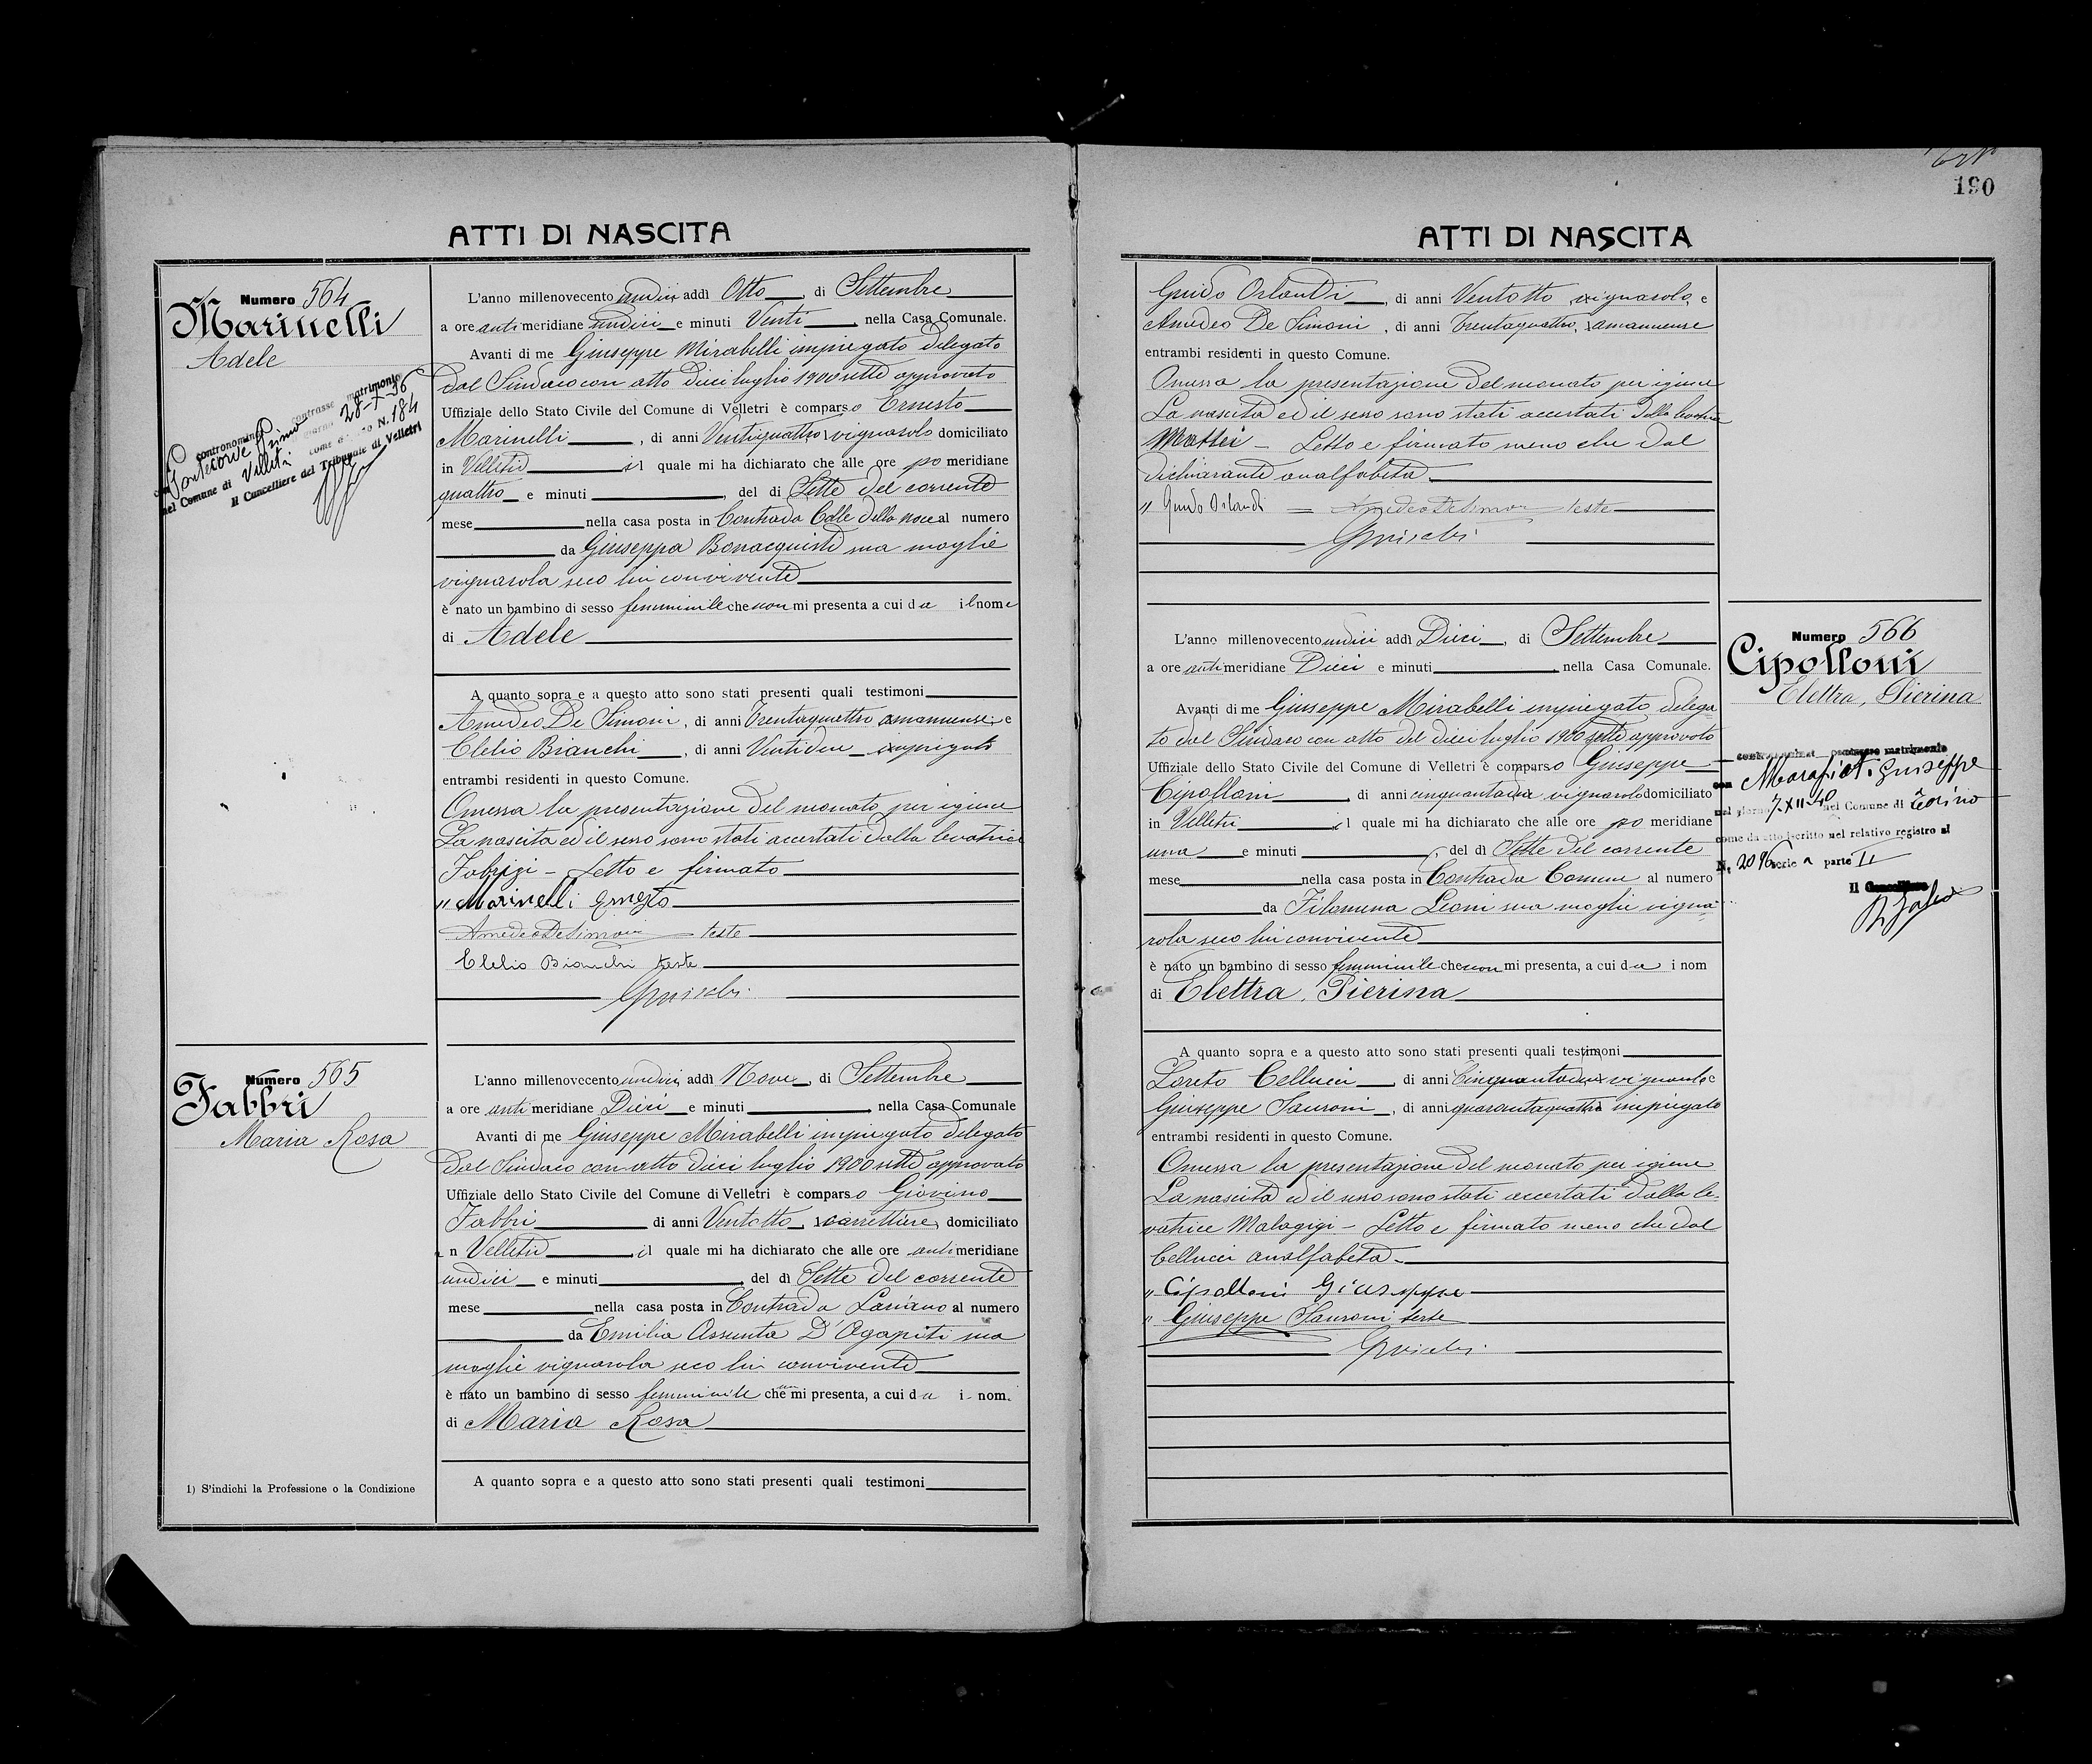 ATTI DI NASCITA
Numero 564
Marinelli
Adele
contronominata contrasse matrimonio
con Pontecorve Primo
nel Comune di Velletri giorno 28-X-36
come da atto N. 184
Il Cancelliere del Tribunale di Velletri
L'anno millenovecento undici addì Otto, di Settembre
a ore antimeridiane undici e minuti Venti, nella Casa Comunale.
Avanti di me Giuseppe Mirabelli impiegato delegato
dal Sindaco con atto Dieci luglio 1900sette approvato
Uffiziale dello Stato Civile del Comune di Velletri è comparso Ernesto
Marinelli, di anni Ventiquattro, vignarolo domiciliato
in Velletri il quale mi ha dichiarato che alle ore po meridiane
quattro e minuti, del dì Sette del corrente
mese nella casa posta in Contrada Colle della noce al numero
da Giuseppa Bonacquisti sua moglie
vignarola seco lui convivente
è nato un bambino di sesso femminile che non mi presenta a cui da il nome
di Adele
A quanto sopra e a questo atto sono stati presenti quali testimoni
Amedeo De Simoni, di anni Trentaquattro amanuense, e
Clelio Bianchi, di anni Ventidue impiegato
entrambi residenti in questo Comune.
Omessa la presentazione del neonato per igiene
La nascita ed il sesso sono stati accertati dalla levatrice
Fabrizi - Letto e firmato
" Marinelli Ernesto
Amedeo De Simoni teste
Clelio Bianchi teste
Numero 565
Fabbri
Maria Rosa
L'anno millenovecento undici, addì Nove, di Settembre
a ore antimeridiane Dieci e minuti, nella Casa Comunale
Avanti di me Giuseppe Mirabelli impiegato delegato
dal Sindaco con atto Dieci luglio 1900sette approvato
Uffiziale dello Stato Civile del Comune di Velletri è comparso Giovino
Fabbri di anni Ventotto, carrettiere, domiciliato
in Velletri il quale mi ha dichiarato che alle ore antimeridiane
undici e minuti, del dì Sette del corrente
mese nella casa posta in Contrada Lariano al numero
da Emilia Assunta D'Agapiti sua
moglie vignarola seco lui convivente
è nato un bambino di sesso femminile che non mi presenta, a cui da i nom.
di Maria Rosa
A quanto sopra e a questo atto sono stati presenti quali testimoni
1) S'indichi la Professione o la Condizione
190
ATTI DI NASCITA
Guido Orlandi, di anni Ventotto vignarolo, e
Amedeo De Simoni, di anni Trentaquattro, amanuense
entrambi residenti in questo Comune.
Omessa la presentazione del neonato per igiene
La nascita ed il sesso sono stati accertati dalla levatrice
Mattei - Letto e firmato meno che dal
dichiarante analfabeta.
" Guido Orlandi = Amedeo De Simoni teste
Numero 566
Cipolloni
Elettra, Pierina
contronominat contrasse matrimonio
con Giuseppe
nel giorno 7-XII-40 nel Comune di Torino
come da atto iscritto nel relativo registro al
N. 2096 serie A parte II
Il Cancelliere
L'anno millenovecento undici addì Dieci, di Settembre
a ore antimeridiane Dieci e minuti, nella Casa Comunale.
Avanti di me Giuseppe Mirabelli impiegato delega
to dal Sindaco con atto del dieci luglio 1900sette approvato
Uffiziale dello Stato Civile del Comune di Velletri è comparso Giuseppe
Cipolloni, di anni cinquantadue vignarolo domiciliato
in Velletri, il quale mi ha dichiarato che alle ore po meridiane
una e minuti, del dì Sette del corrente
mese nella casa posta in Contrada Comune al numero
da Filomena Leoni sua moglie vigna
rola seco lui convivente
è nato un bambino di sesso femminile che non mi presenta, a cui da i nom
di Elettra, Pierina
A quanto sopra e a questo atto sono stati presenti quali testimoni
Loreto Cellucci, di anni Cinquantadue vignarolo e
Giuseppe Sauroni, di anni quarantaquattro impiegato
entrambi residenti in questo Comune.
Omessa la presentazione del neonato per igiene
La nascita ed il sesso sono stati accertati dalla le
vatrice Malagigi - Letto e firmato meno che dal
Cellucci analfabeta.
" Cipolloni Giuseppe
" Giuseppe Sauroni teste